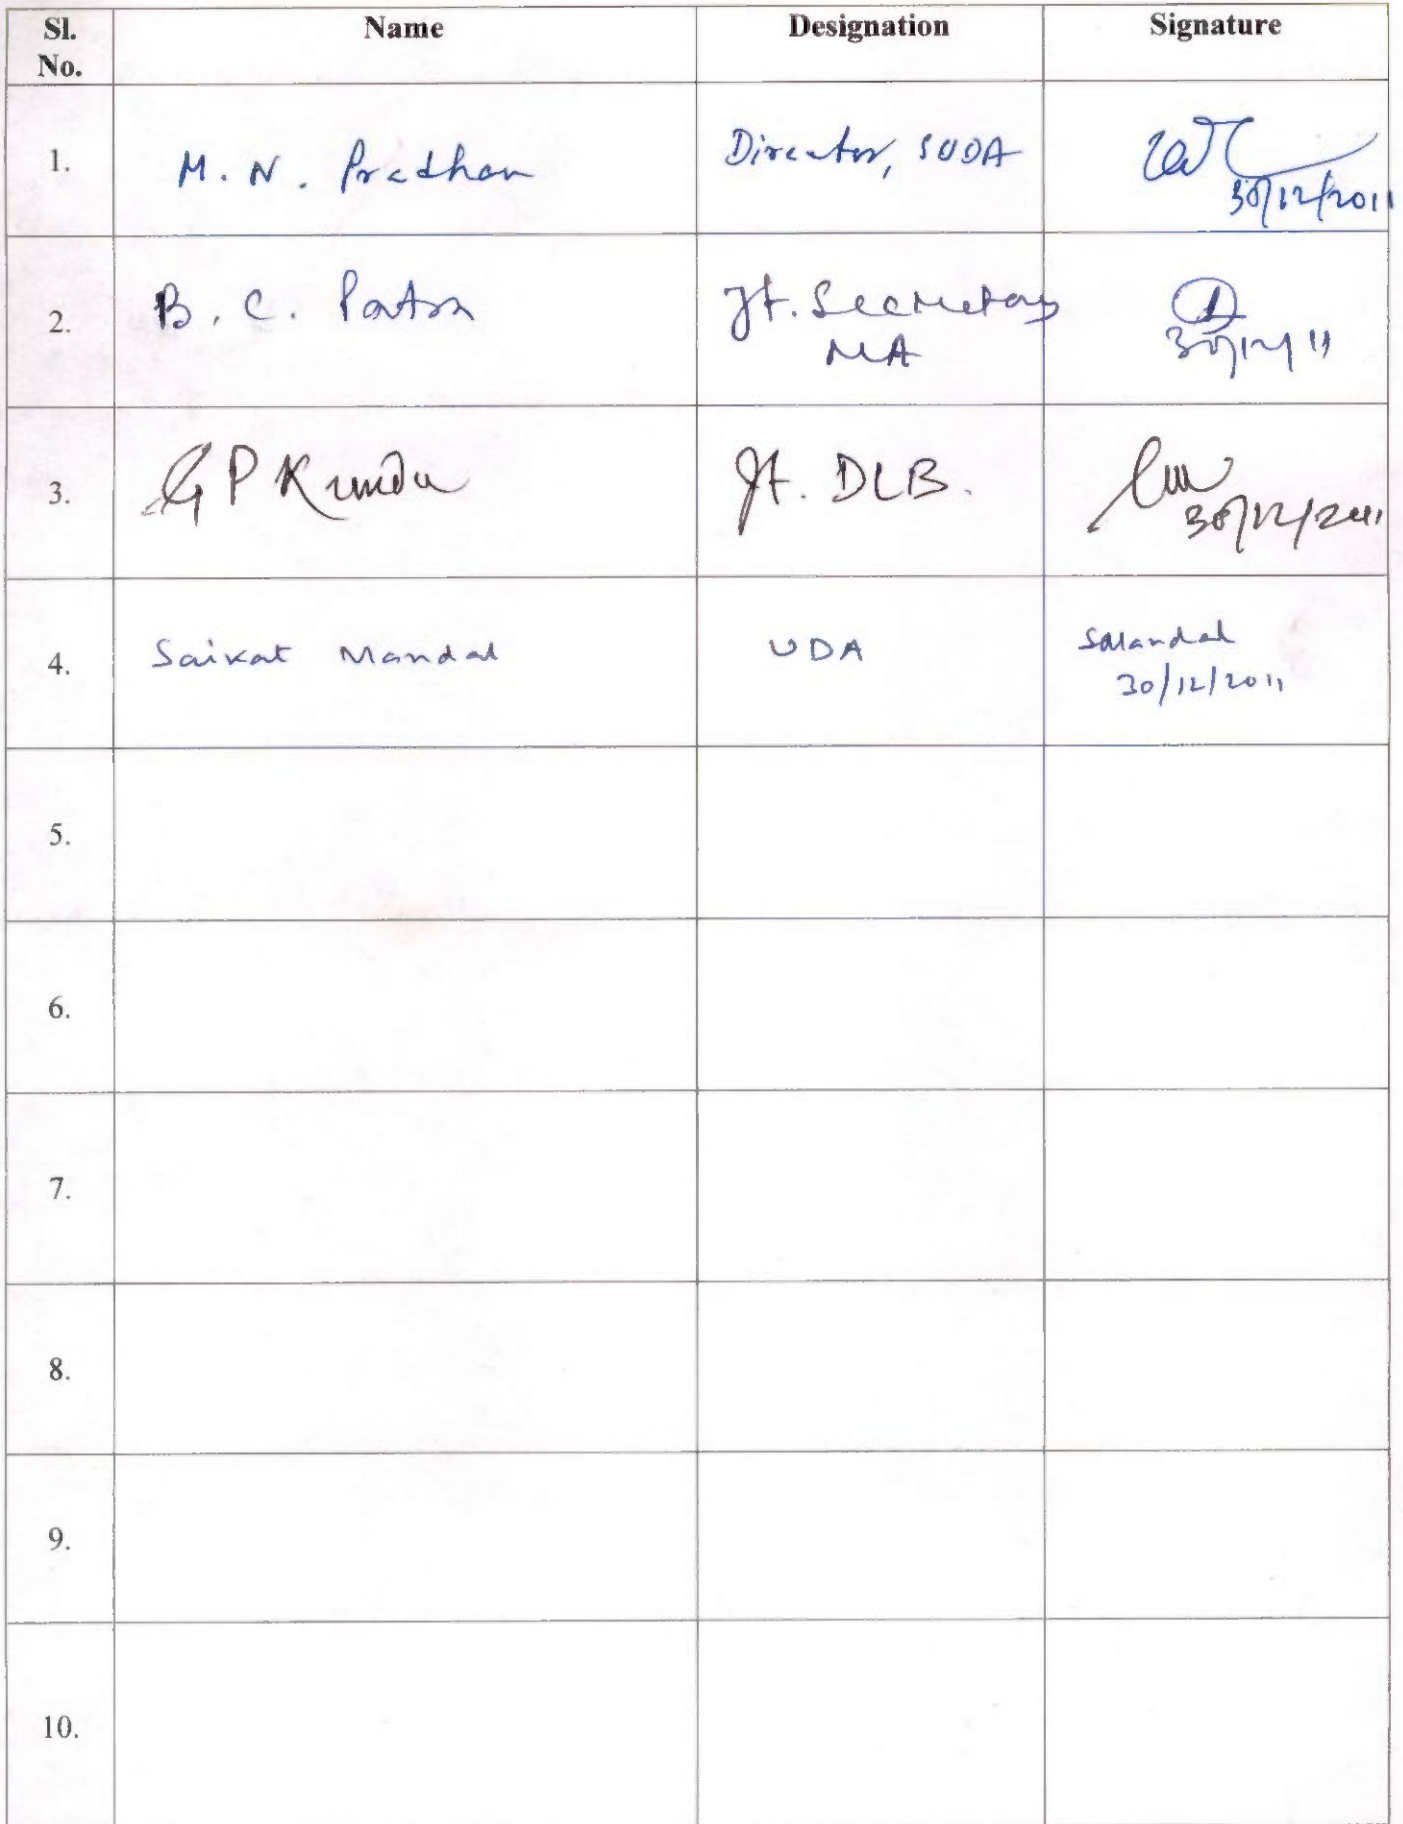 Sl. No. Name Designation Signature
1. M. N. Pradhan Director, SUDA 30/12/2011
2. B. C. Patra Jt. Secretary MA 30/12/11
3. G P Kundu Jt. DLB. 30/12/2011
4. Saikat Mandal UDA SMandal 30/12/2011
5.
6.
7.
8.
9.
10.